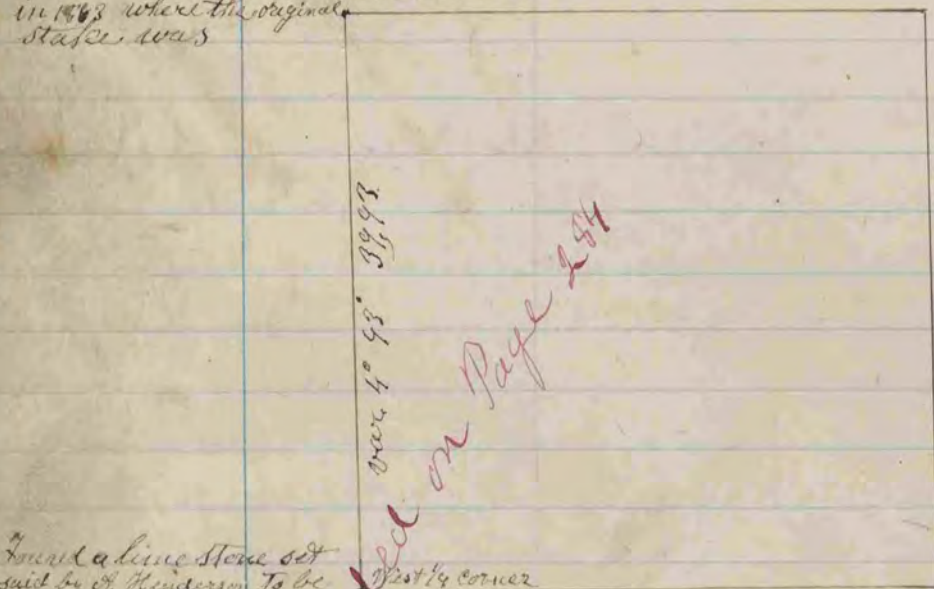 in 1863 where the original
stake was
var. 4° 43' 39,93
ed on Page 284
Found a lime stone set
said by A Henderson to be
West ¼ corner